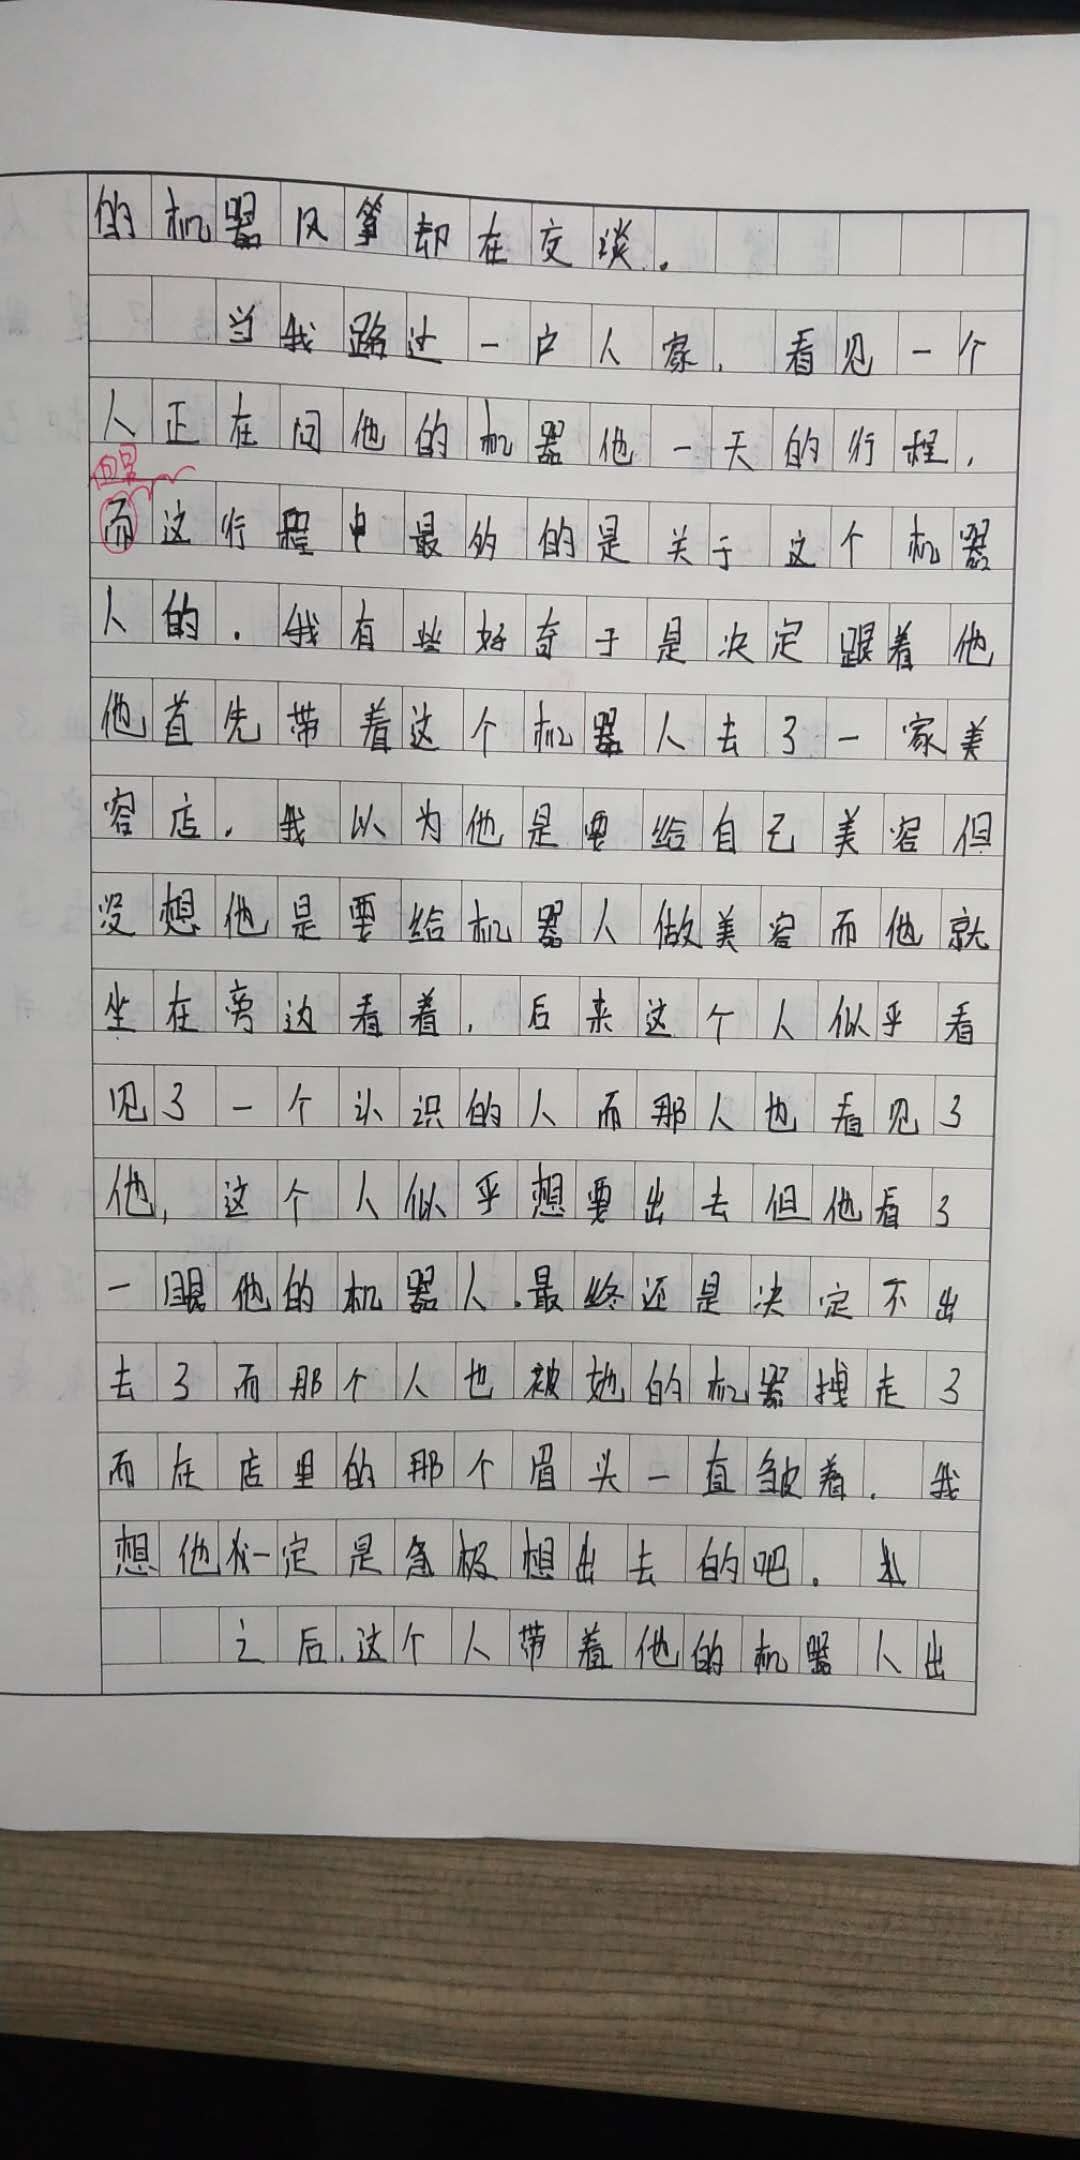 的机器风筝却在交谈.
当我路过一户人家.看见一个
人正在问他的机器他一天的行程,
但是
而这行程中最多的是关于这个机器
人的.我有些好奇于是决定跟着他
他首先带着这个机器人去了一家美
容店.我以为他是要给自己美容但
没想他是要给机器人做美容而他就
坐在旁边看着.后来这个人似乎看
见了一个认识的人而那人也看见了
他,这个人似乎想要出去但他看了
一眼他的机器人.最终还是决定不出
去了而那个人也被她的机器拽走了
而在店里的那个眉头一直皱着.我
想他一定是急极想出去的吧.
之后.这个人带着他的机器人出